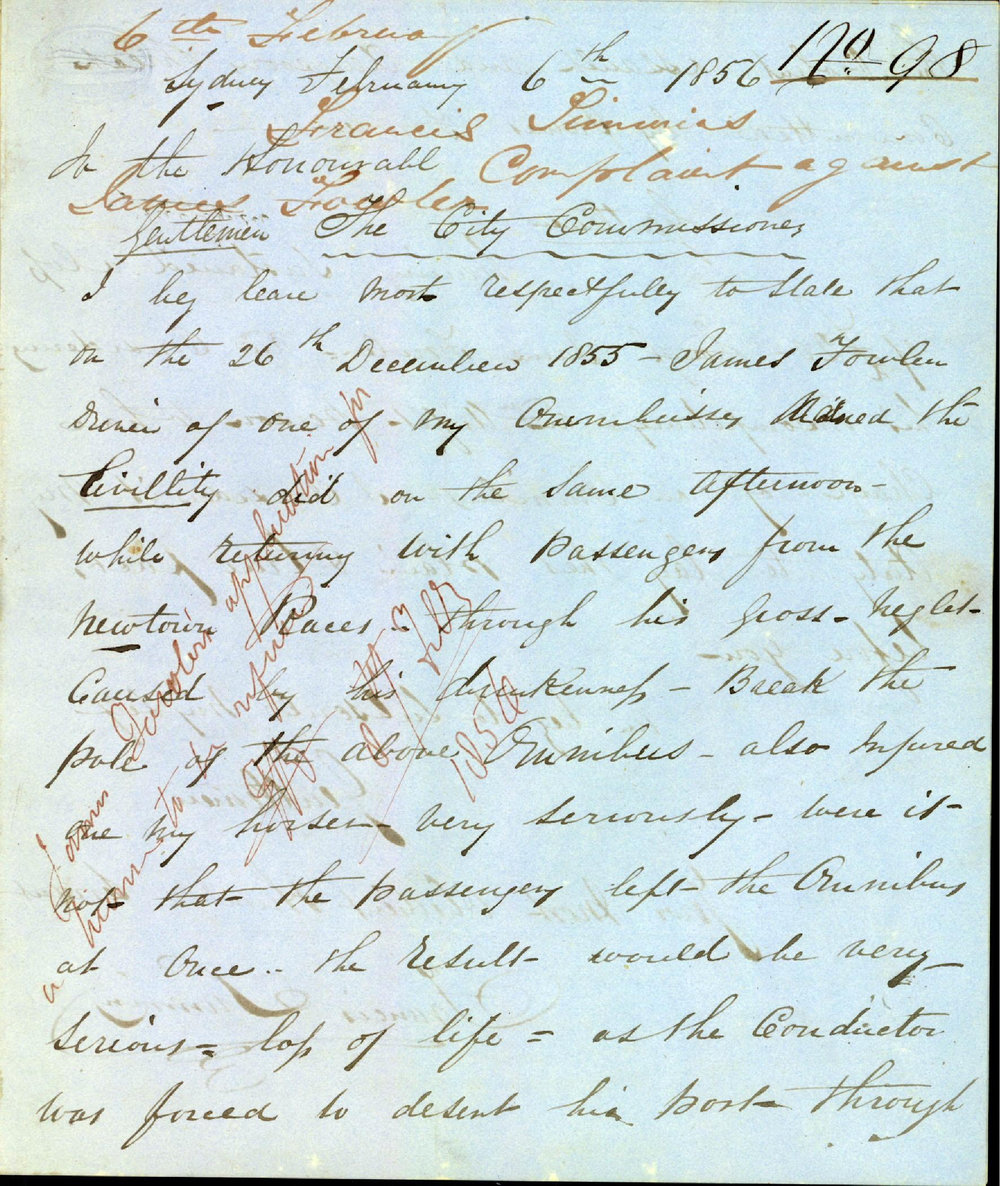 6th February
Sydney February 6th 1856 No. 98
Francis Simmins
To the Honourabl Complaint against
James Fowler
Gentlemen The City Commissiones
I beg leave most respectfully to state that
on the 26th December 1855 - James Fowler
Driver of one of my Omnibusses Named the
Civillity did on the same afternoon -
while returning with passengers from the
Newtown Races - through his gross - neglet -
Caused by his drunkenness - Break the
pole of the above Omnibus - also Injured
one my horses - very seriously - were it -
not that the passengers left the Omnibus
at Once .. the result would be very -
serious = loss of life = as the Conductor
was forced to desent his post - through
James Fowler's application for
a license to be refused
8 Feby
1856